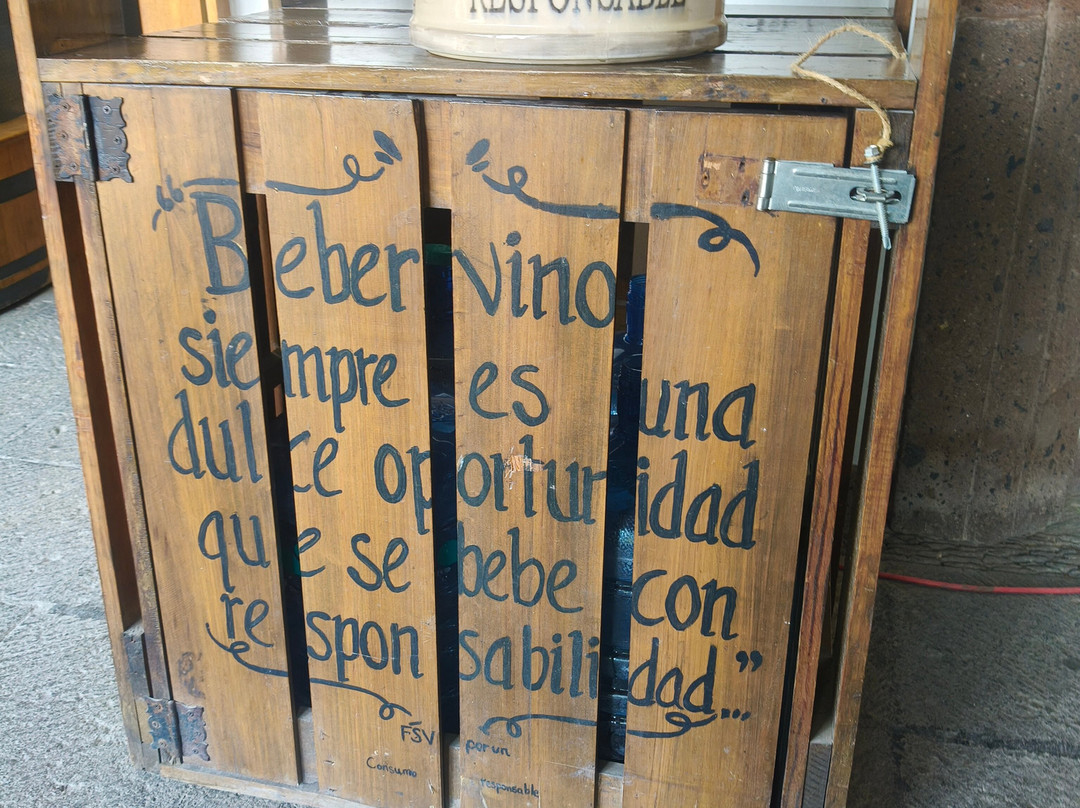 RESPONSABLE
"Beber vino
siempre es una
dulce oportunidad
que se bebe con
responsabilidad..."
FSV
Consumo
por un
responsable